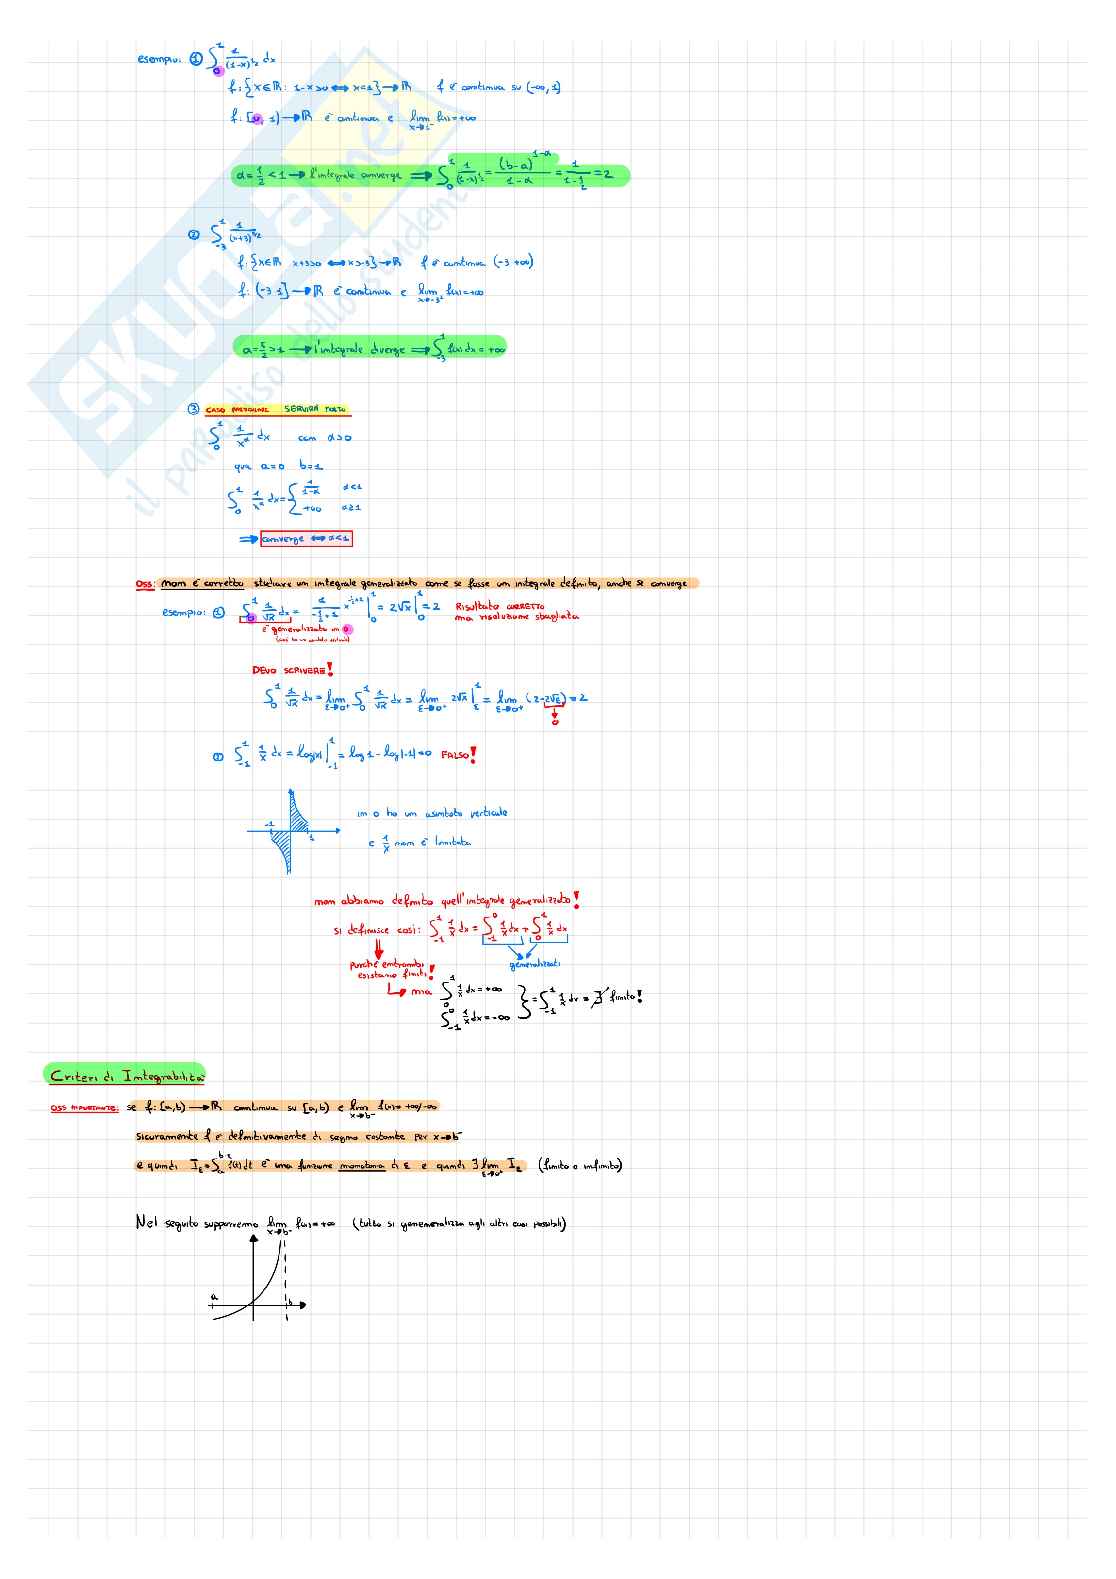 esempio: ① ∫₀¹ 1/(1-x)^½ dx
f: {x∈ℝ: 1-x>0 ⟺ x=1} → ℝ f è continua su (-∞, 1)
f: [0, 1) → ℝ è continua e lim x→1⁻ f(x)=+∞
α=1/2 < 1 → l'integrale converge ⟹ ∫₀¹ 1/(1-x)^½ = (b-a)^(1-α)/(1-α) = 1/(1-1/2) = 2
② ∫₋₃¹ 1/(x+3)^5/2
f: {x∈ℝ x+3>0 ⟺ x>-3} → ℝ f è continua (-3 +∞)
f: (-3 1] → ℝ è continua e lim f(x)=+∞
α=5/2 > 1 → l'integrale diverge ⟹ ∫₋₃¹ f(x) dx = +∞
③ CASO PARTICOLARE SERVIRÀ TANTO
∫₀¹ 1/x^α dx con α>0
qua a=0 b=1
∫₀¹ 1/x^α dx = { 1/(1-α) α<1
+∞ α≥1
⟹ converge ⟺ α<1
OSS: non è corretto studiare un integrale generalizzato come se fosse un integrale definito, anche se converge
esempio: ① ∫₀¹ 1/√x dx = 1/(-½+1) x^(-½+1) |₀¹ = 2√x |₀¹ = 2 Risultato CORRETTO
ma risoluzione sbagliata
è generalizzato in 0
DEVO SCRIVERE!
∫₀¹ 1/√x dx = lim ε→0⁺ ∫₀¹ 1/√x dx = lim ε→0⁺ 2√x |ε¹ = lim ε→0⁺ (2-2√ε) = 2
0
② ∫₋₁¹ 1/x dx = log|x| |₋₁¹ = log 1 - log|-1| = 0 FALSO!
-1 1
in 0 ho un asintoto verticale
e 1/x non è limitata
non abbiamo definito quell'integrale generalizzato!
si definisce così: ∫₋₁¹ 1/x dx = ∫₋₁⁰ 1/x dx + ∫₀¹ 1/x dx
purché entrambi
esistano finiti! generalizzati
ma ∫₀¹ 1/x dx = +∞
∫₋₁⁰ 1/x dx = -∞ } = ∫₋₁¹ 1/x dx = ∄ finito!
Criteri di Integrabilità
OSS IMPORTANTE: se f: [a,b) → ℝ continua su [a,b) e lim x→b⁻ f(x)= +∞/-∞
sicuramente f è definitivamente di segno costante per x→b⁻
e quindi I_ε = ∫ₐ^(b-ε) f(t) dt è una funzione monotona di ε e quindi ∃ lim ε→0⁺ I_ε (finito o infinito)
Nel seguito supporremo lim x→b⁻ f(x)=+∞ (tutto si genereralizza agli altri casi possibili)
a b
SKUOLA.net
il paradiso dello studente